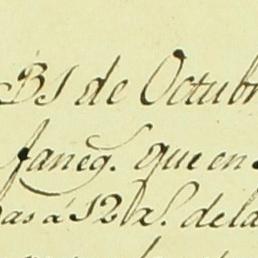 31 de Octubr
faneg. que en
das á 12 rs. de la